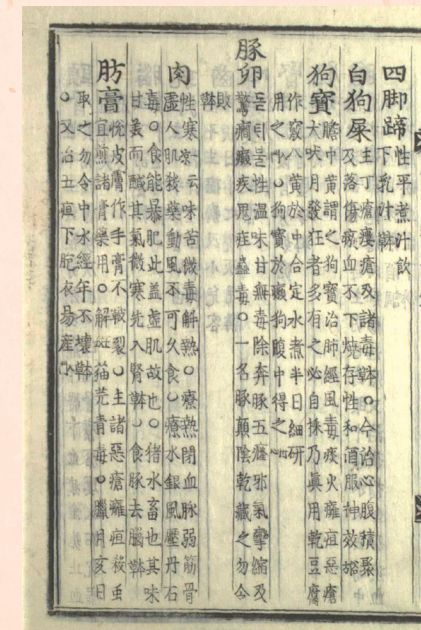 四脚蹄 性平煮汁飮
下乳汁 본초
白狗屎 主丁瘡瘻瘡及諸毒 本草 ○今治心腹積聚
及落傷瘀血不下燒存性和酒服神效 俗
狗寶 膽中黃謂之狗寶治肺經風毒痰火癰疽惡瘡
犬吠月發狂者多有之必自採乃眞用乾豆腐
作竅入黃於中合定水煮半日細研
用之 ○狗寶於癩狗腹中得之
豚卵 性溫味甘無毒除奔豚五癃邪氣攣縮及
驚癎癲疾鬼疰蠱毒○一名豚顚陰乾藏之勿令
敗
肉 性寒 云味苦微毒解熱○療熱閉血脉弱筋骨
虛人肌殺藥動風不可久食○療水銀風壓丹石
毒○食能暴肥此盖虛肌故也○猪水畜也其味
甘美而醎其氣微寒先入腎 ○食豚去腦
肪膏 悅皮膚作手膏不皸裂○主諸惡瘡癰疽殺虫
宜煎諸膏藥用○解斑猫芫靑毒○臘月亥日
取之勿令中水經年不壞
○又治五疸下胞衣易産